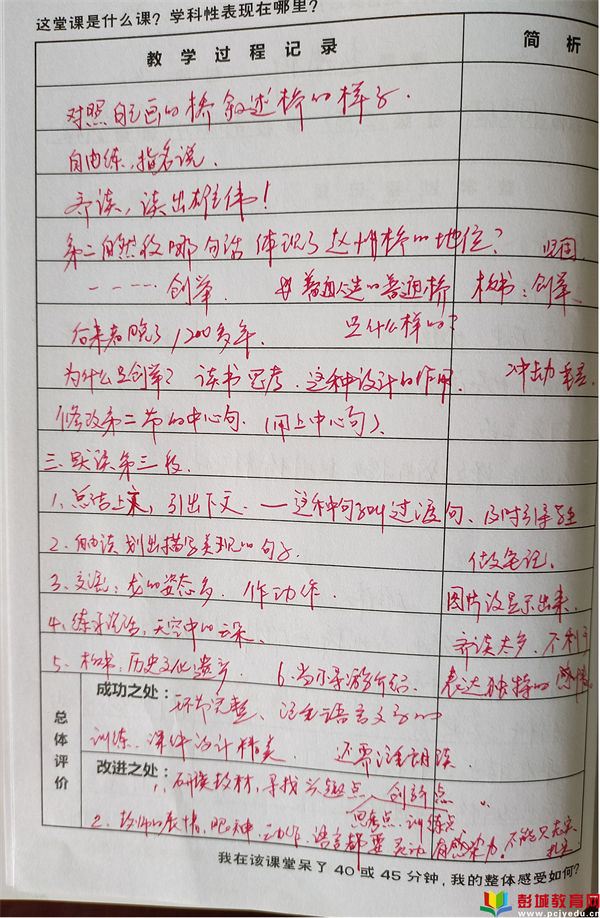 这堂课是什么课？学科性表现在哪里？
教学过程记录 简析
对照自己画的桥叙述桥的样子.
自由练,指名说.
齐读,读出雄伟!
第二自然段哪句话体现了赵州桥的地位? 坚固
……创举. 普通人造的普通桥 板书:创举
后来者晚了1200多年. 是什么样的?
为什么是创举? 读书思考.这种设计的作用. 冲击力 重量
修改第二节的中心句.(用上中心句).
三.默读第三段.
1.总结上文,引出下文.—这种句子叫过渡句. 及时引导学生
2.自由读 划出描写美观的句子 做笔记.
3.交流:龙的姿态多. 作动作. 图片没显示出来.
4.练习说话,天空中的云朵. 齐读太多,不利于
5.板书:历史文化遗产 6.当小导游介绍. 表达独特的感情.
总体评价
成功之处:环节完整、注重语言文字的
训练.课件设计精美. 还需注重朗读
改进之处:1.研读教材,寻找兴趣点、创新点
思考点、训练点
2.教师的表情,眼神,动作,语言都要灵动 有感染力.不能只走
我在该课堂呆了40或45分钟,我的整体感受如何?
彭城教育网
www.pcjyedu.cn